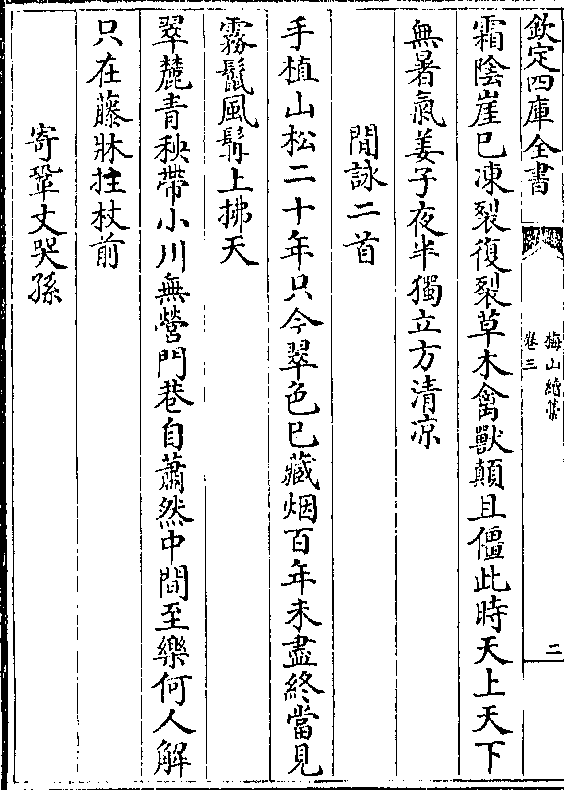 欽定四庫全書
梅山續藁
卷三
二
霜陰崖已凍裂復裂草木禽獸顛且僵此時天上天下
無暑氣姜子夜半獨立方清凉
閒詠二首
手植山松二十年只今翠色已藏烟百年未盡終當見
霧鬛風髯上拂天
翠麓青秧帶小川無營門巷自蕭然中間至樂何人解
只在藤牀拄杖前
寄鞏丈哭孫